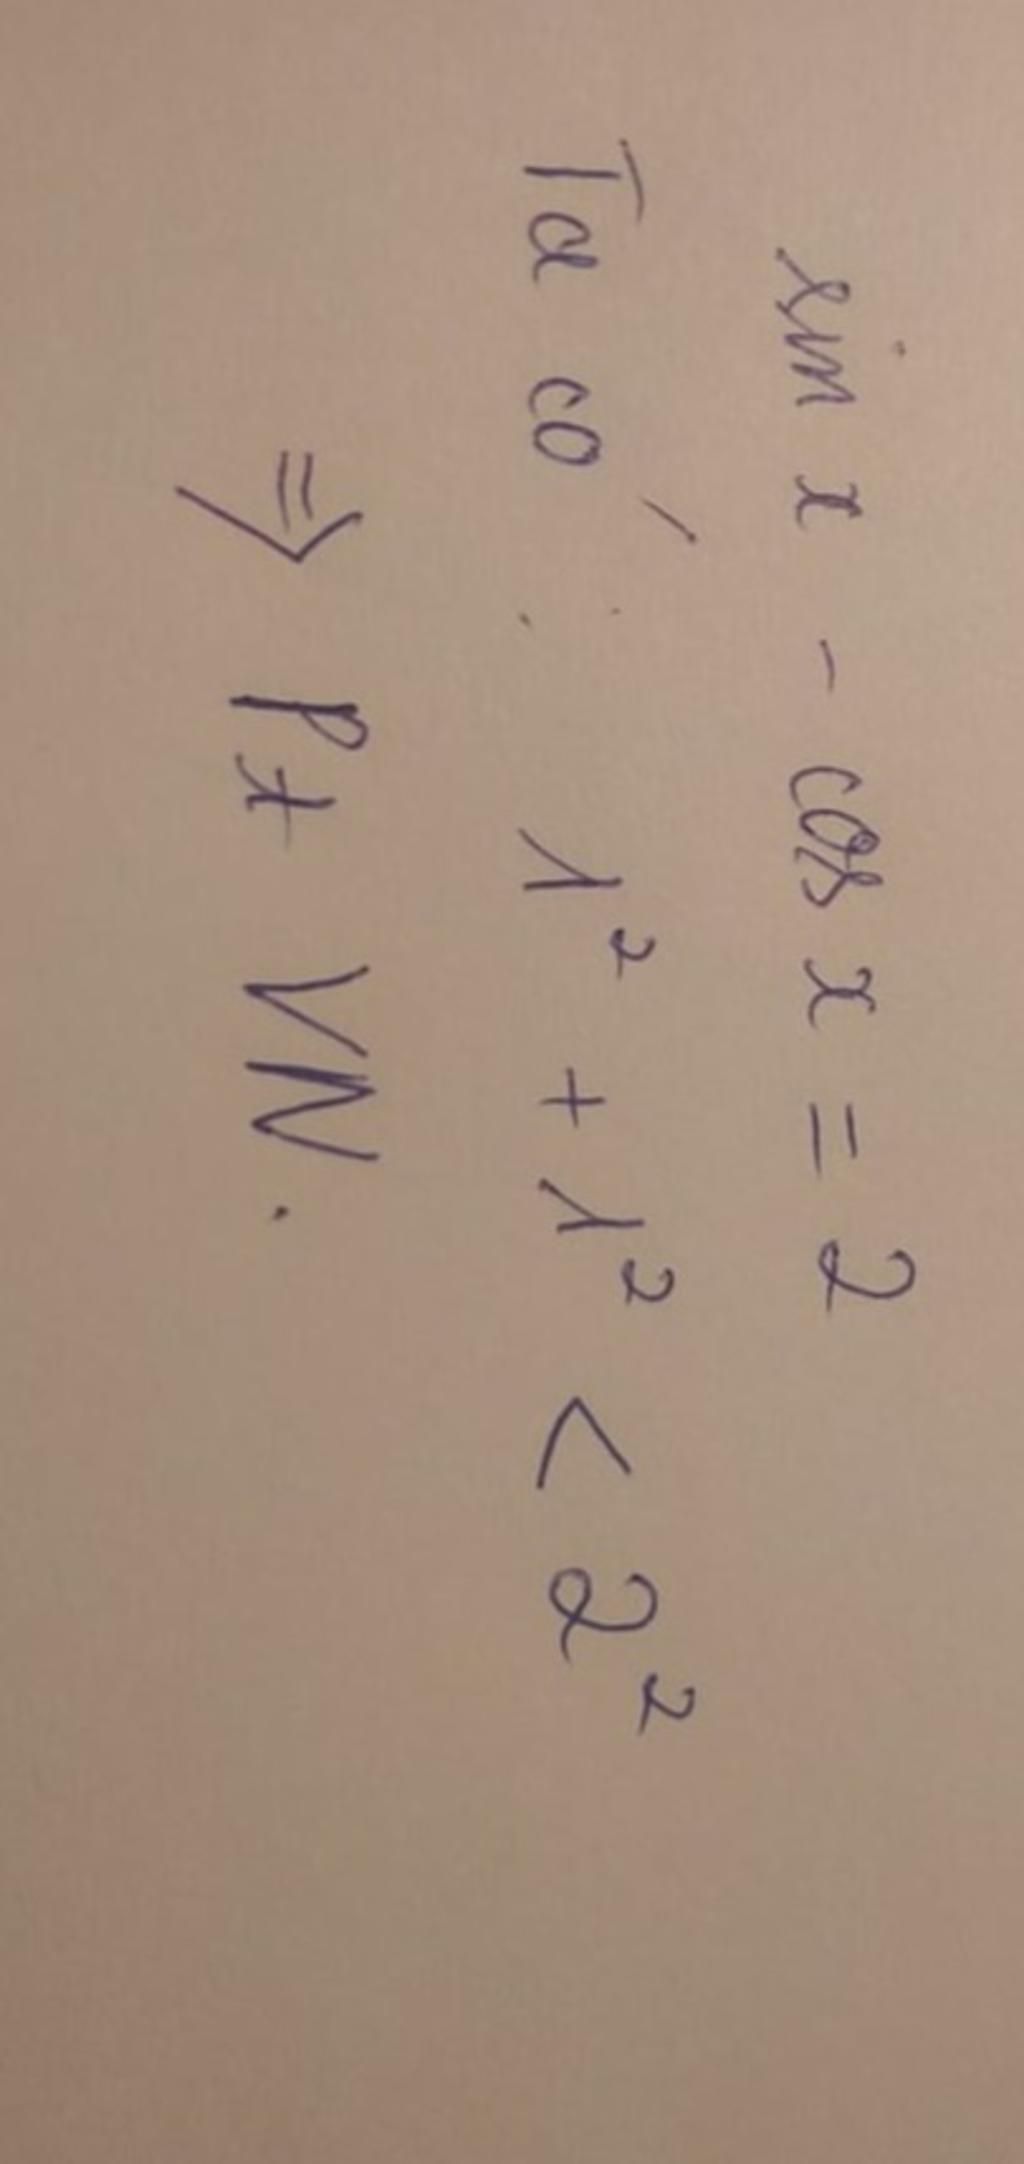 sin x - cos x = 2
Ta có : 1² + 1² < 2²
=> Pt VN.